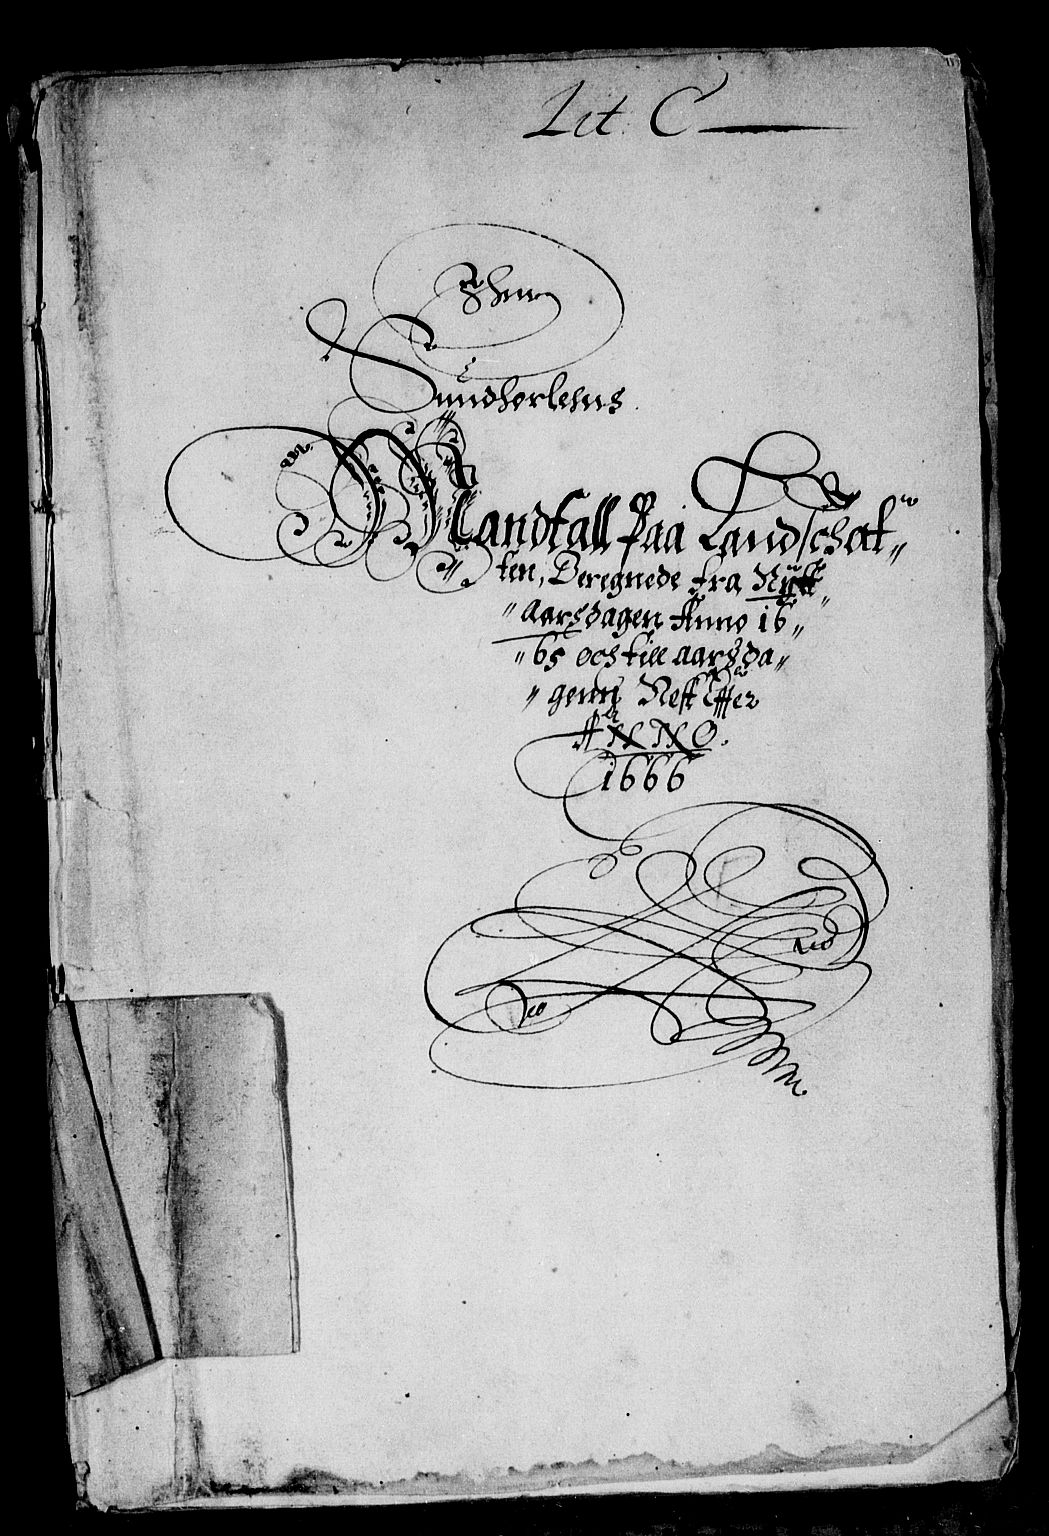 Lit: C
Sundhorlehns
Mandtall Paa Landschat„
ten, Beregnede fra Nÿtt„
„aarsdagen Anno 16„
„65 och till aarsda„
„genn Nest Effter
ANNO.
1666